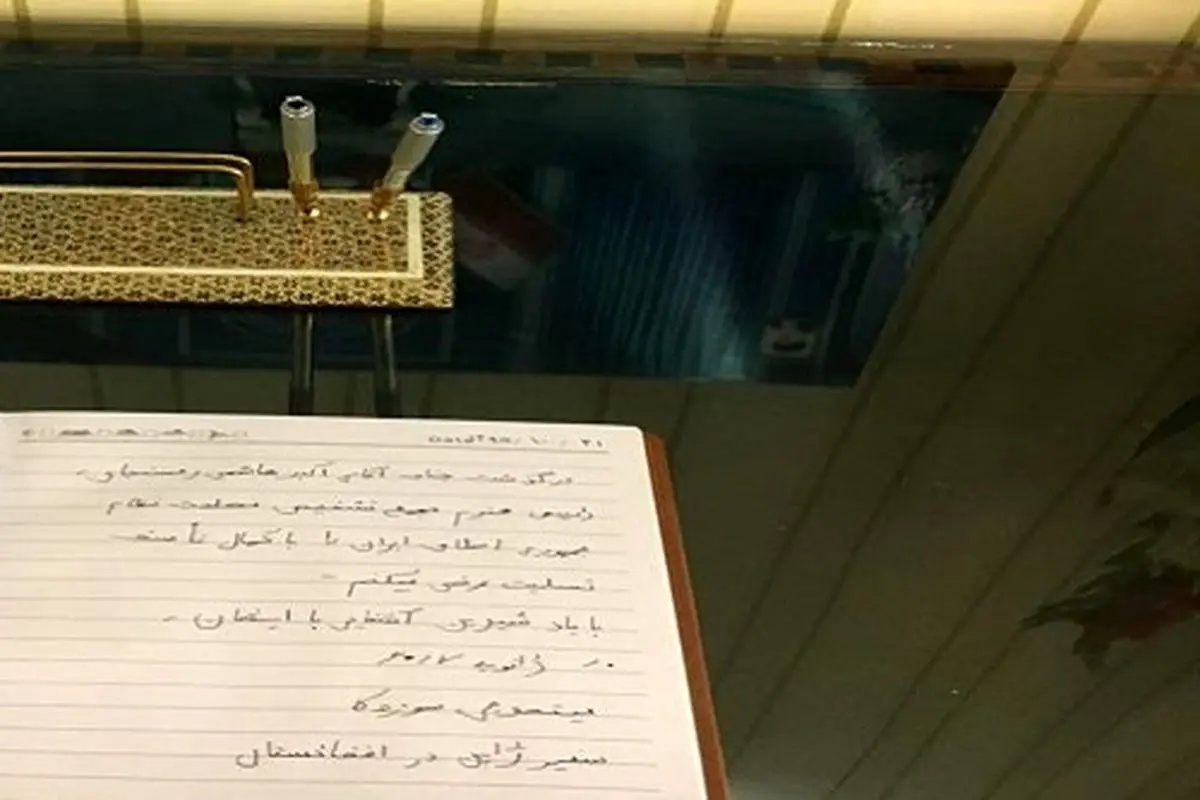 درگذشت جناب آقای اکبر هاشمی رفسنجانی،
رئیس محترم مجمع تشخیص مصلحت نظام
جمهوری اسلامی ایران را با کمال تأسف
تسلیت عرض میکنم.
با یاد شیرین آشنایی با ایشان،
میتسوجی سوزوکا
سفیر ژاپن در افغانستان